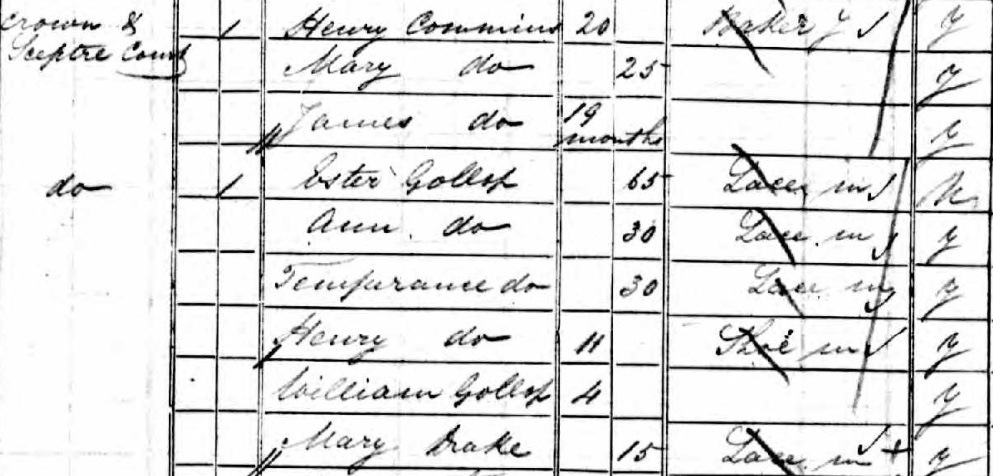 Crown & 1 Henry Commins 20 Baker J y
Sceptre Court Mary do 25 y
James do 19 months y
do 1 Ester Gollop 65 Lace m N
Ann do 30 Lace m y
Temperance do 30 Lace m y
Henry do 11 Shoe m y
William Gollop 4 y
Mary Drake 15 Lace m y